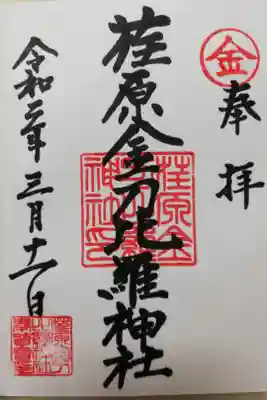 金
奉拝
荏原金刀比羅神社
荏原金刀比羅神社印
令和二年三月十一日